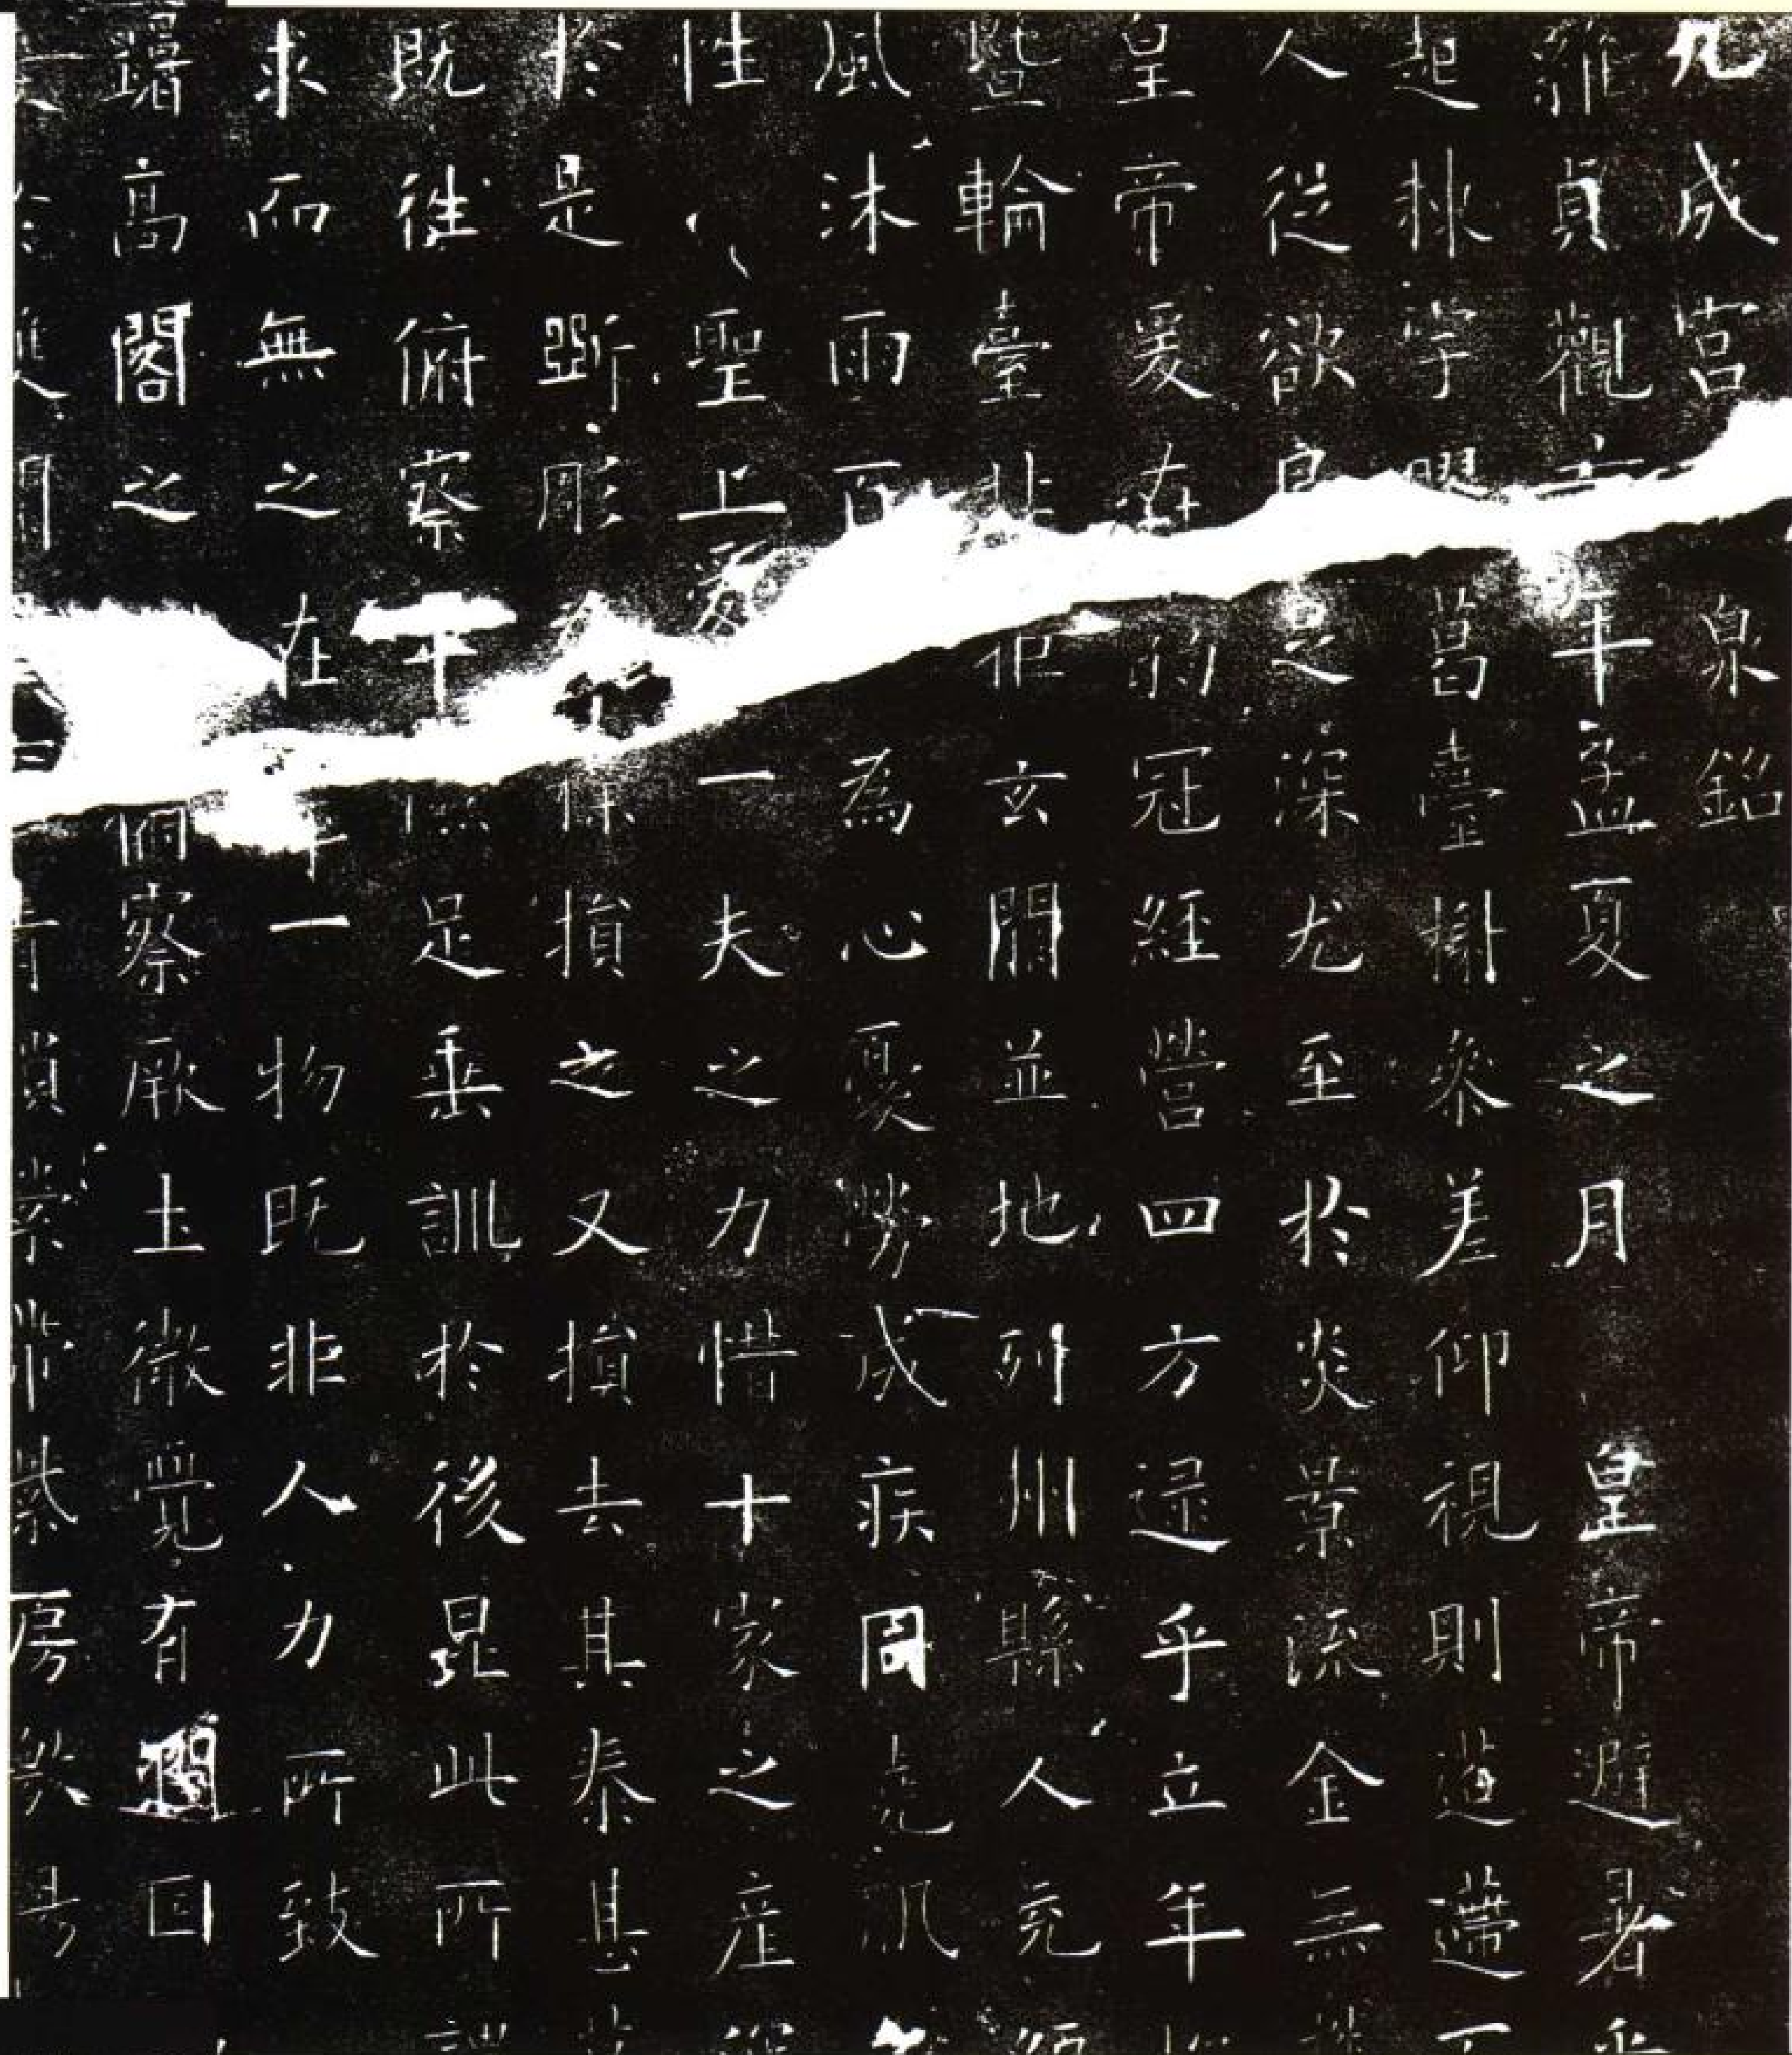 九成宮泉銘
維貞觀六年孟夏之月皇帝避暑
起棟宇膠葛臺榭參差仰視則迢遰
人從欲良足深尤至於炎景流金無
皇帝爰在弱冠經營四方逮乎立年
暨輪臺北拒玄闕並地列州縣人充
風沐雨百為心憂勞成疾同堯肌
性聖上愛一夫之力惜十家之產
於是斵彫損之又損去其泰甚
既往俯察卑足垂訓於後昆此所
求而無之在乎一物既非人力所致
躇高閣之俯察厥土微覺有潤因